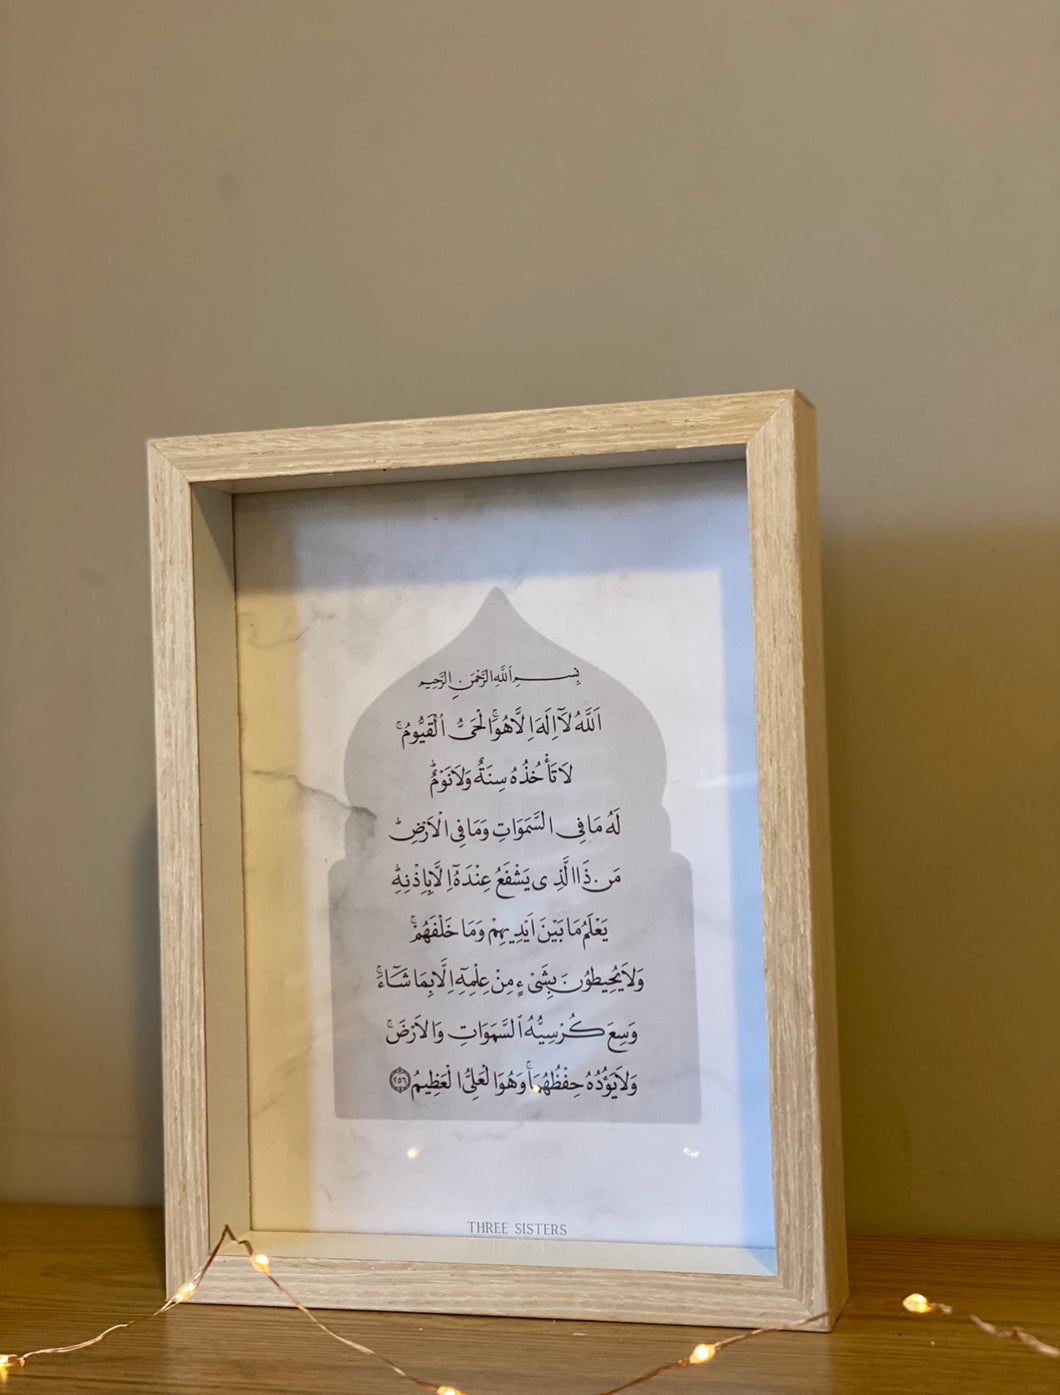 بِسْمِ اللّٰهِ الرَّحْمٰنِ الرَّحِيْمِ
اَللّٰهُ لَاۤ اِلٰهَ اِلَّا هُوَۚ الْحَىُّ الْقَيُّوْمُۚ
لَا تَأْخُذُهٗ سِنَةٌ وَلَا نَوْمٌؕ
لَهٗ مَا فِى السَّمٰوَاتِ وَمَا فِى الْاَرْضِؕ
مَنْ ذَا الَّذِى يَشْفَعُ عِنْدَهٗۤ اِلَّا بِاِذْنِهٖؕ
يَعْلَمُ مَا بَيْنَ اَيْدِيْهِمْ وَمَا خَلْفَهُمْۚ
وَلَا يُحِيْطُوْنَ بِشَىْءٍ مِنْ عِلْمِهٖۤ اِلَّا بِمَا شَاۤءَۚ
وَسِعَ كُرْسِيُّهُ السَّمٰوَاتِ وَالْاَرْضَۚ
وَلَا يَؤُدُهٗ حِفْظُهُمَاۚ وَهُوَ الْعَلِىُّ الْعَظِيْمُ ﴿٢٥٦﴾
THREE SISTERS